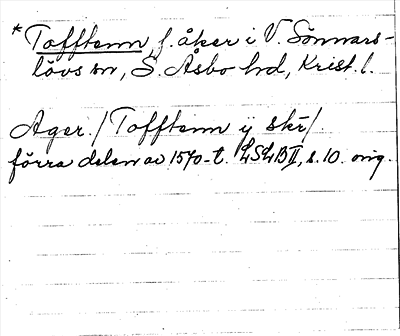 * Tofftenn, f. åker i V. Sönnars-
lövs sn, S. Åsbo hd, Krist. l.
Ager. / Tofftenn ij skr/
förra delen av 1570-t. LSLB II, s. 10. orig.